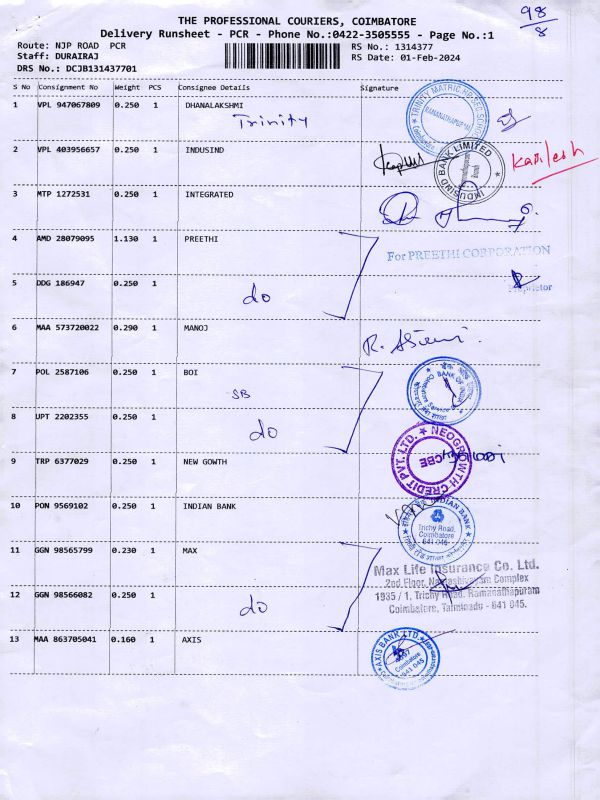 98
8
THE PROFESSIONAL COURIERS, COIMBATORE
Delivery Runsheet - PCR - Phone No.:0422-3505555 - Page No.:1
Route: NJP ROAD PCR
RS No.: 1314377
Staff: DURAIRAJ
RS Date: 01-Feb-2024
DRS No.: DCJB131437701
S No Consignment No Weight PCS Consignee Details Signature
1 VPL 947067809 0.250 1 DHANALAKSHMI
Trinity
TRINITY MATRIC HR SEC SCHOOL
RAMANATHAPURAM
2 VPL 403956657 0.250 1 INDUSIND
INDUSIND BANK LIMITED
Kamlesh
3 MTP 1272531 0.250 1 INTEGRATED
4 AMD 28079095 1.130 1 PREETHI
For PREETHI CORPORATION
Proprietor
5 DDG 186947 0.250 1
do
6 MAA 573720022 0.290 1 MANOJ
7 POL 2587106 0.250 1 BOI
SB
BANK OF INDIA
8 UPT 2202355 0.250 1
do
9 TRP 6377029 0.250 1 NEW GOWTH
NEOGROWTH CREDIT PVT. LTD.
CBE
10 PON 9569102 0.250 1 INDIAN BANK
INDIAN BANK
Trichy Road,
Coimbatore
641 045
11 GGN 98565799 0.230 1 MAX
Max Life Insurance Co. Ltd.
2nd Floor, Namashivayam Complex
1935 / 1, Trichy Road, Ramanathapuram
Coimbatore, Tamilnadu - 641 045.
12 GGN 98566082 0.250 1
do
13 MAA 863705041 0.160 1 AXIS
AXIS BANK LTD.
Coimbatore
641 045